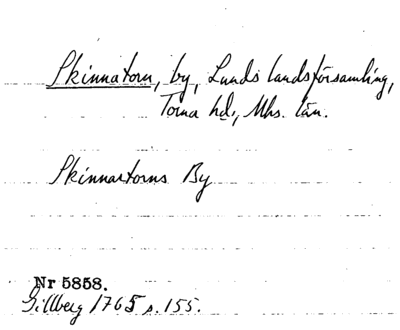 Skinnatorn, by, Lunds landsförsamling,
Torna hd., Mhs. län.
Skinnartorns By
Nr 5858.
Gillberg 1765 s. 155.